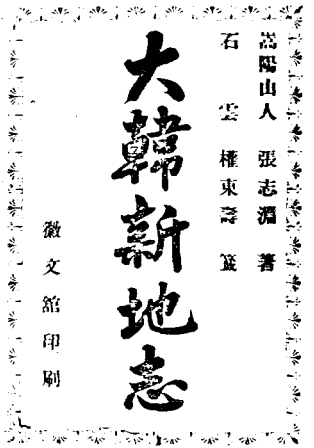 嵩陽山人 張志淵 著
石雲 權東壽 簽
大韓新地志
徽文舘印刷